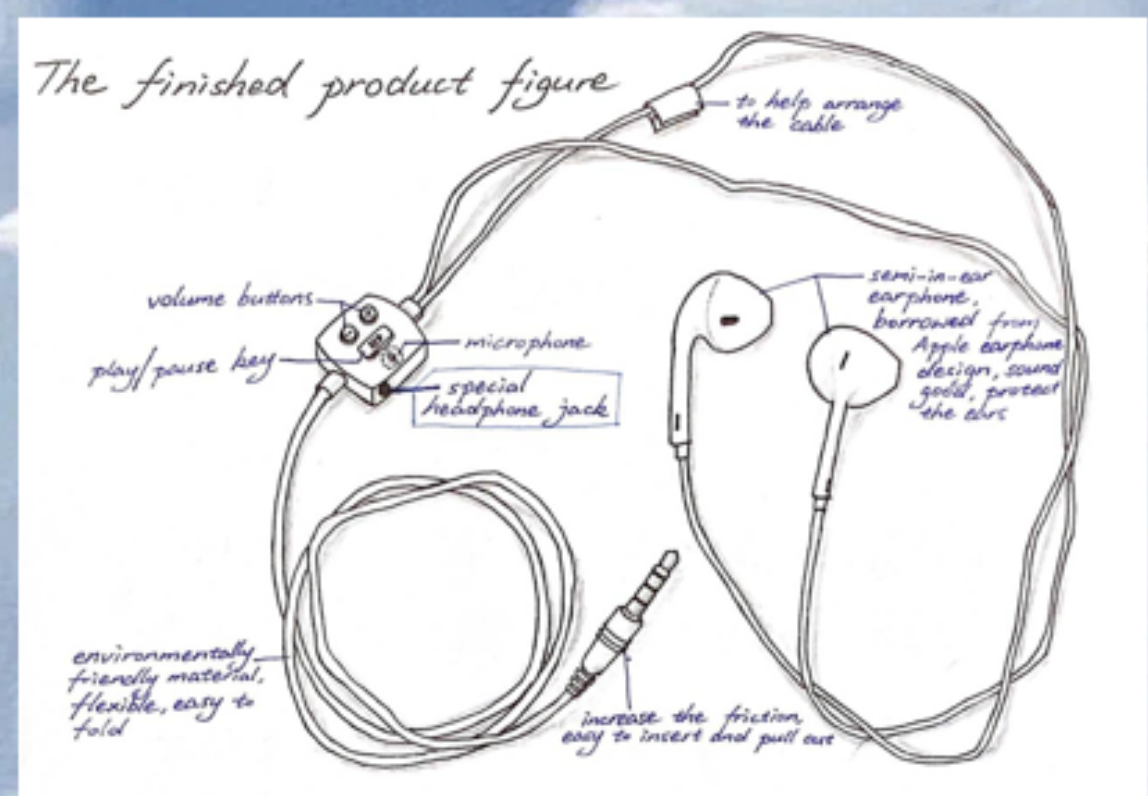 The finished product figure
to help arrange
the cable
volume buttons
play/pause key
microphone
special
headphone jack
semi-in-ear
earphone,
borrowed from
Apple earphone
design, sound
good, protect
the ears
environmentally
friendly material,
flexible, easy to
fold
increase the friction,
easy to insert and pull out